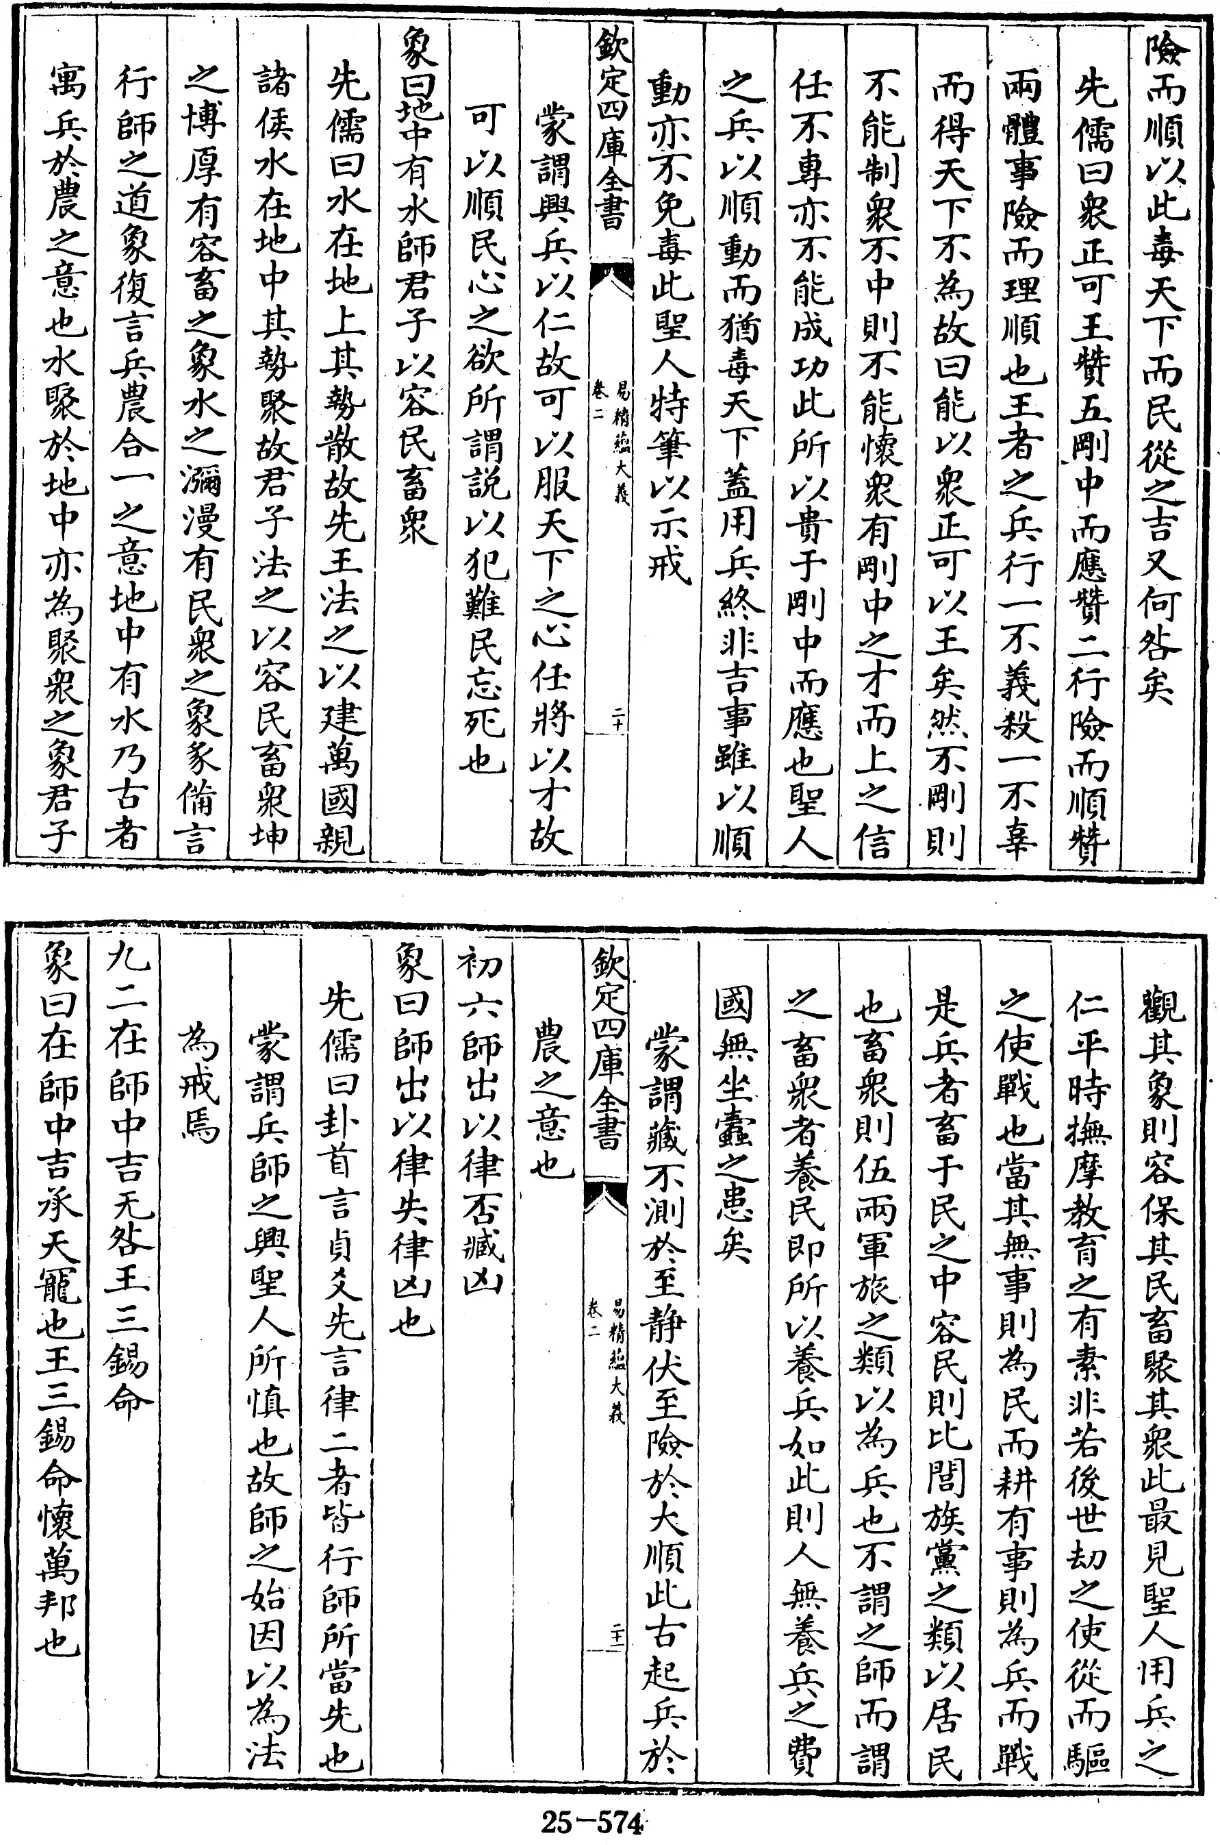 險而順以此毒天下而民從之吉又何咎矣
先儒曰衆正可王贊五剛中而應贊二行險而順贊
兩體事險而理順也王者之兵行一不義殺一不辜
而得天下不為故曰能以衆正可以王矣然不剛則
不能制衆不中則不能懷衆有剛中之才而上之信
任不專亦不能成功此所以貴于剛中而應也聖人
之兵以順動而猶毒天下蓋用兵終非吉事雖以順
動亦不免毒此聖人特筆以示戒
欽定四庫全書
易精蘊大義
卷二
二十
蒙謂興兵以仁故可以服天下之心任將以才故
可以順民心之欲所謂説以犯難民忘死也
象曰地中有水師君子以容民畜衆
先儒曰水在地上其勢散故先王法之以建萬國親
諸侯水在地中其勢聚故君子法之以容民畜衆坤
之博厚有容畜之象水之瀰漫有民衆之象彖備言
行師之道象復言兵農合一之意地中有水乃古者
寓兵於農之意也水聚於地中亦為聚衆之象君子
觀其象則容保其民畜聚其衆此最見聖人用兵之
仁平時撫摩教育之有素非若後世劫之使從而驅
之使戰也當其無事則為民而耕有事則為兵而戰
是兵者畜于民之中容民則比閭族黨之類以居民
也畜衆則伍兩軍旅之類以為兵也不謂之師而謂
之畜衆者養民即所以養兵如此則人無養兵之費
國無坐蠹之患矣
蒙謂藏不測於至静伏至險於大順此古起兵於
欽定四庫全書
易精蘊大義
卷二
二十一
農之意也
初六師出以律否臧凶
象曰師出以律失律凶也
先儒曰卦首言貞爻先言律二者皆行師所當先也
蒙謂兵師之興聖人所慎也故師之始因以為法
為戒焉
九二在師中吉无咎王三錫命
象曰在師中吉承天寵也王三錫命懷萬邦也
25-574